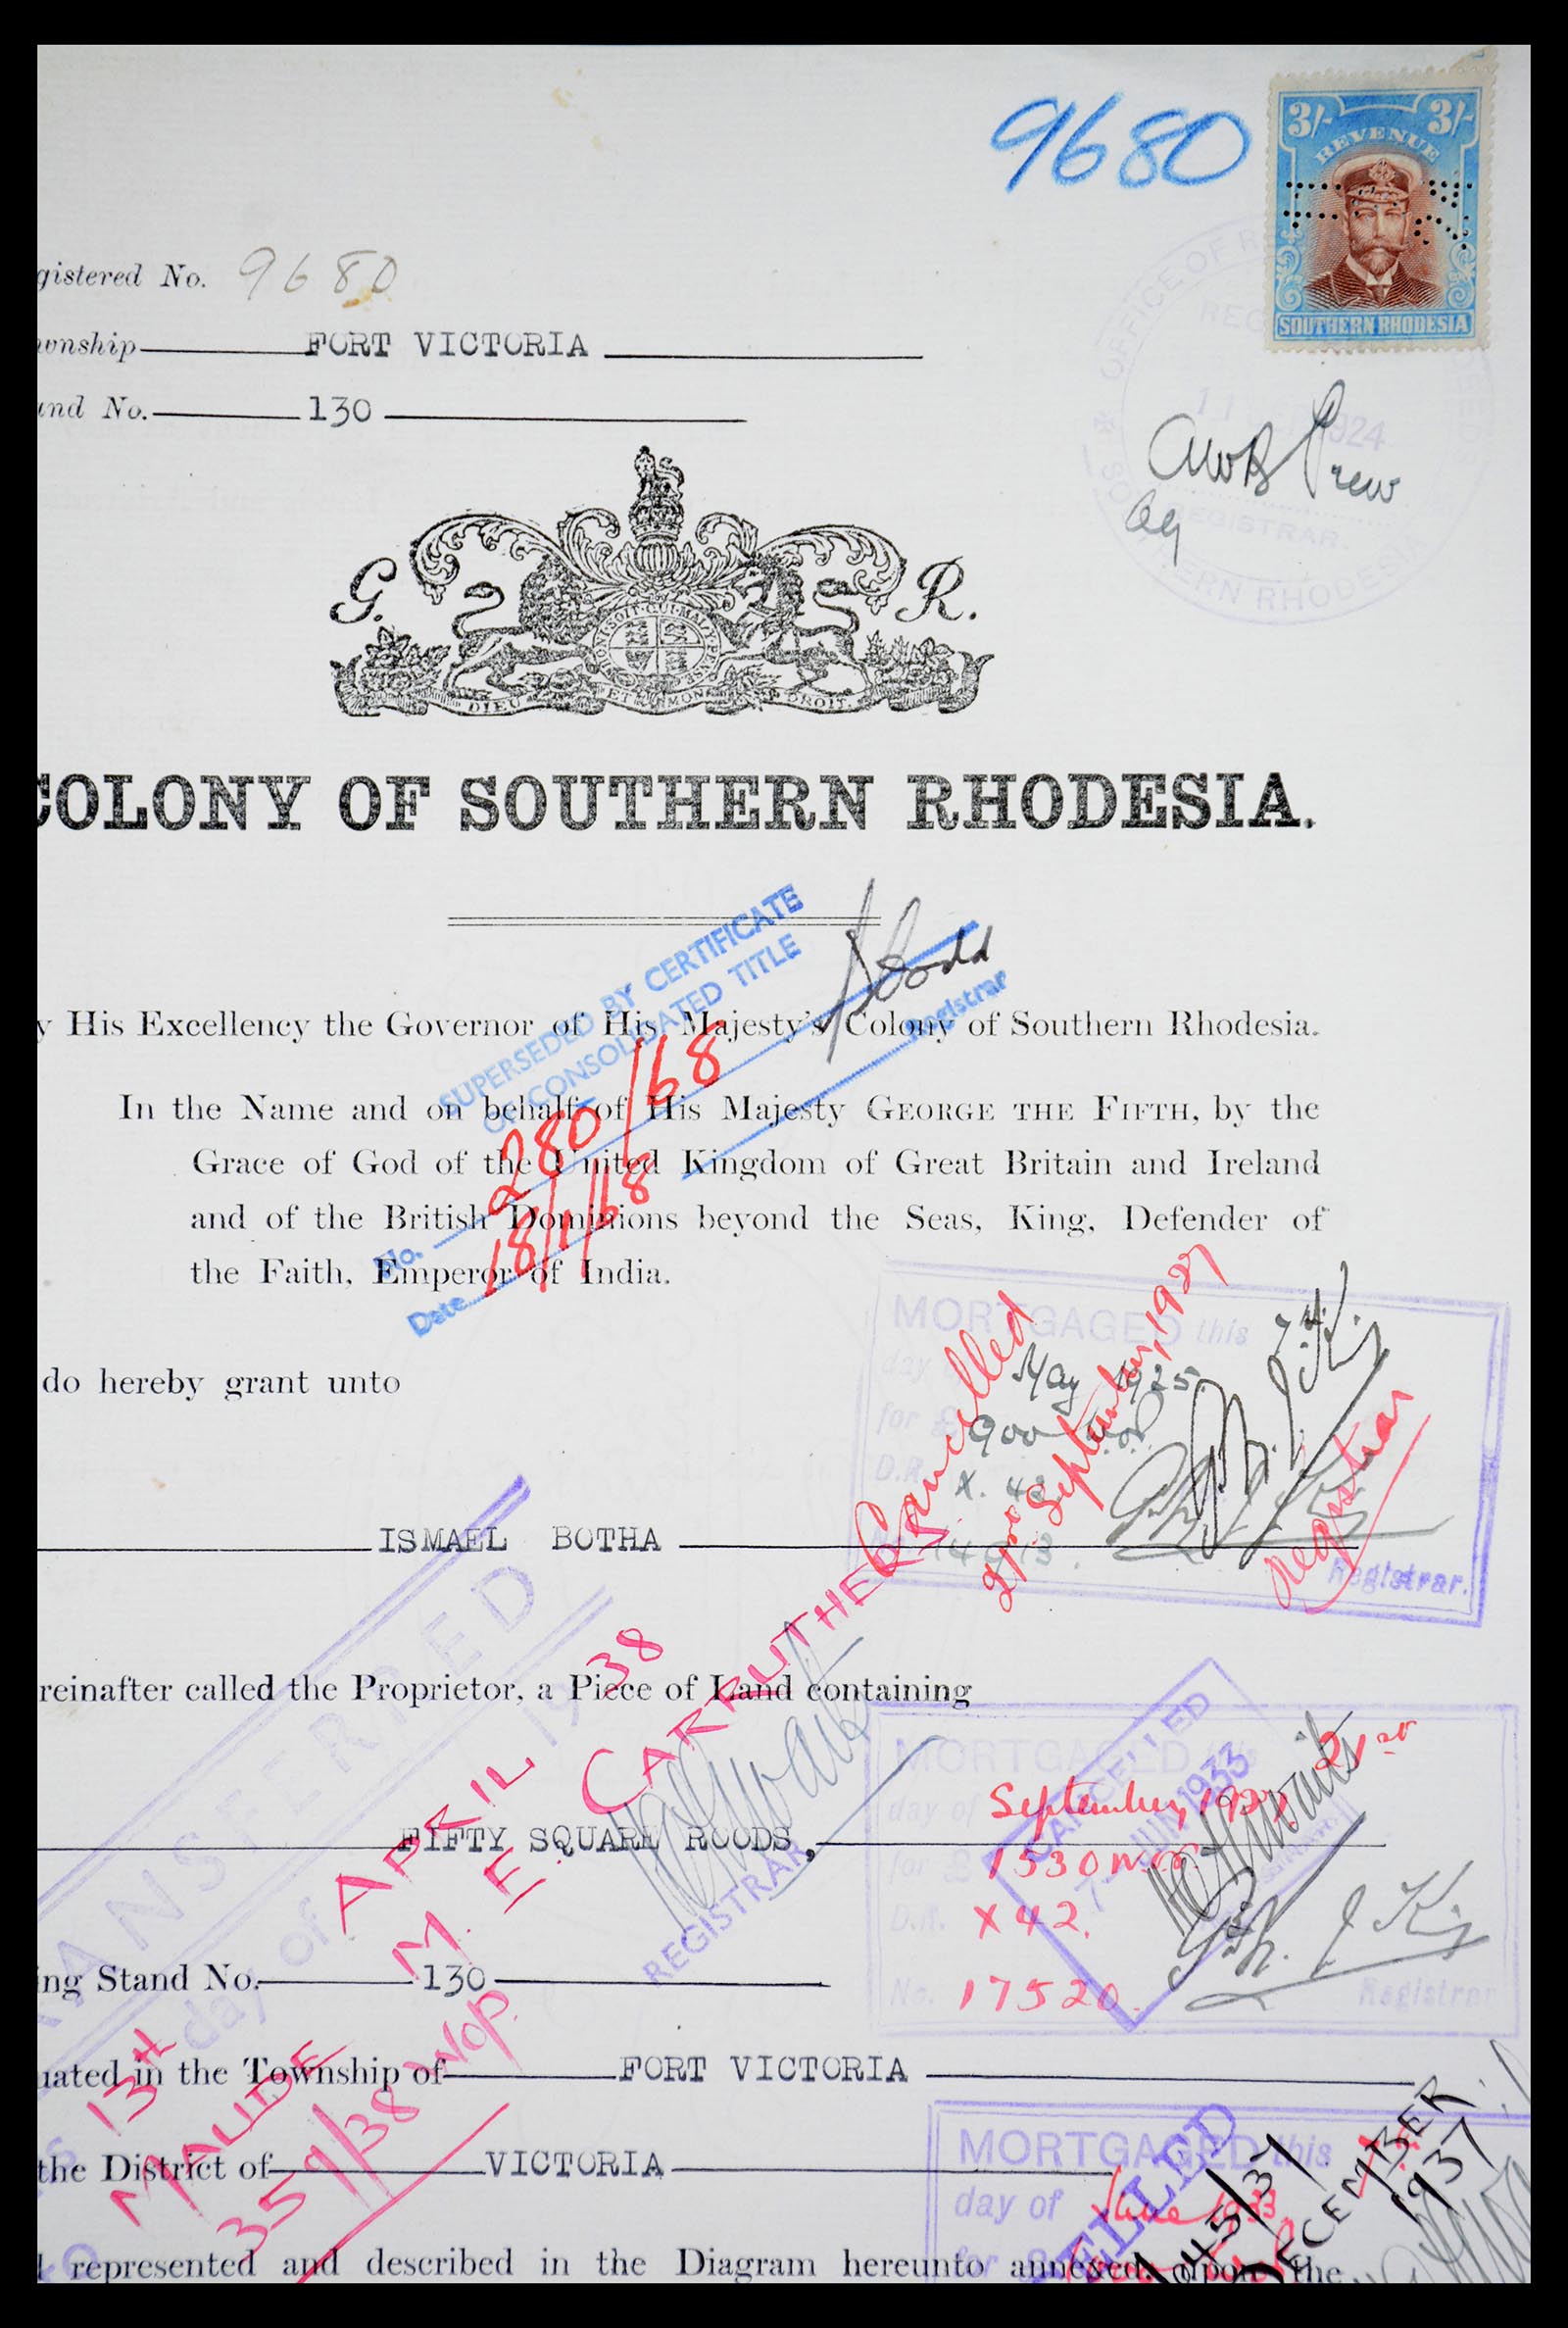 9680
3/- 3/-
REVENUE
SOUTHERN RHODESIA
gistered No. 9680
wnship FORT VICTORIA
and No. 130
OFFICE OF
1924
REGISTRAR
SOUTHERN RHODESIA
G. R.
HONI SOIT QUI MAL Y PENSE
DIEU ET MON DROIT.
COLONY OF SOUTHERN RHODESIA.
SUPERSEDED BY CERTIFICATE
OF CONSOLIDATED TITLE
No. 280/68
Date 18/1/68
Registrar
y His Excellency the Governor of His Majesty's Colony of Southern Rhodesia.
In the Name and on behalf of His Majesty GEORGE THE FIFTH, by the
Grace of God of the United Kingdom of Great Britain and Ireland
and of the British Dominions beyond the Seas, King, Defender of
the Faith, Emperor of India.
MORTGAGED this 7th
day May 1925
for £ 900
D.R. X. 42
Registrar.
Cancelled
21st September, 1927
Registrar
do hereby grant unto
ISMAEL BOTHA
TRANSFERRED
13th day of APRIL 1938
MAUDE M. E. CARRUTHERS
359/38 WOP.
REGISTRAR
reinafter called the Proprietor, a Piece of Land containing
FIFTY SQUARE ROODS,
MORTGAGED this 21st
day of September, 1927
for £ 1530
D.R. X 42.
No. 17520.
Registrar
CANCELLED
7 JUN 1933
ing Stand No. 130
uated in the Township of FORT VICTORIA
the District of VICTORIA
MORTGAGED this
day of June 1933
for £
DECEMBER
1937
l represented and described in the Diagram hereunto annexed, upon the